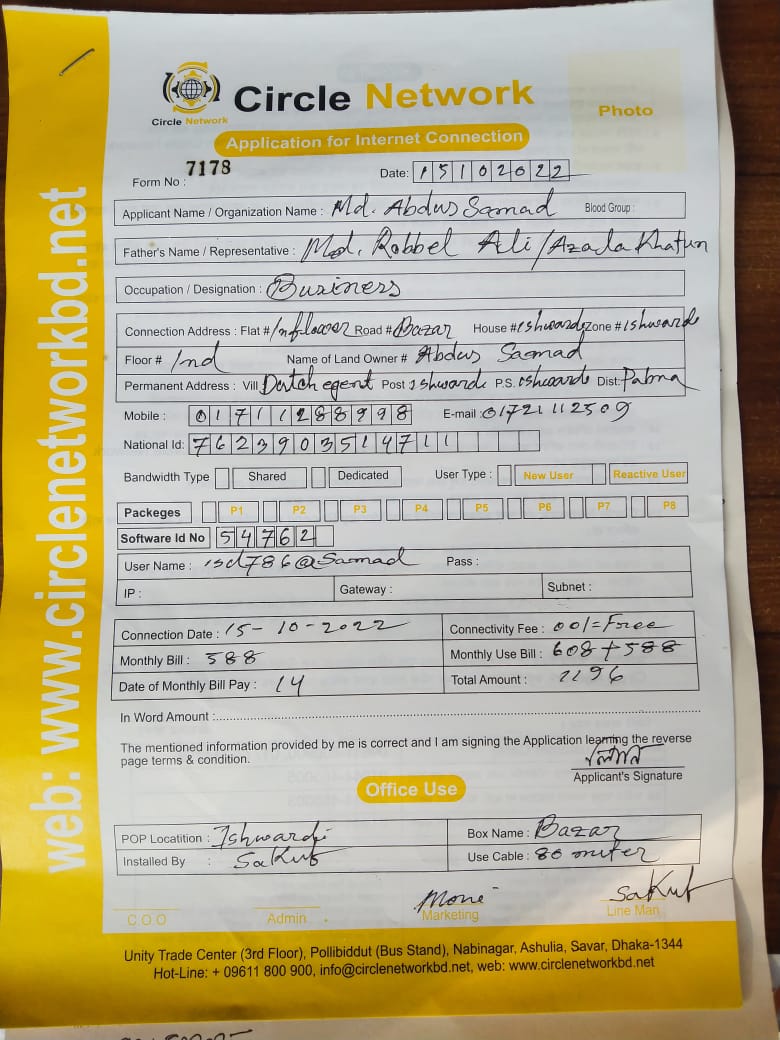 Circle Network
Circle Network
Photo
Application for Internet Connection
Form No : 7178
Date: 15102022
Applicant Name / Organization Name : Md. Abdus Samad Blood Group :
Father's Name / Representative : Md. Robbel Ali / Azada Khatun
Occupation / Designation : Business
Connection Address : Flat # Road # Bazar House # Ishwardi Zone # Ishwardi
Floor # Ind Name of Land Owner # Abdus Samad
Permanent Address : Vill Post Ishwardi P.S. Ishwardi Dist: Pabna
Mobile : 01711288998 E-mail : 01721112509
National Id: 7623903514711
Bandwidth Type Shared Dedicated User Type : New User Reactive User
Packeges P1 P2 P3 P4 P5 P6 P7 P8
Software Id No 54762
User Name : isd786@Samad Pass :
IP : Gateway : Subnet :
Connection Date : 15-10-2022 Connectivity Fee : 00/= Free
Monthly Bill : 588 Monthly Use Bill : 608+588
Date of Monthly Bill Pay : 14 Total Amount : 1196
In Word Amount :
The mentioned information provided by me is correct and I am signing the Application learning the reverse
page terms & condition.
Applicant's Signature
Office Use
POP Locatition : Ishwardi Box Name : Bazar
Installed By : Sakut Use Cable : 80 miter
Mone Sakut
C O O Admin Marketing Line Man
Unity Trade Center (3rd Floor), Pollibiddut (Bus Stand), Nabinagar, Ashulia, Savar, Dhaka-1344
Hot-Line: + 09611 800 900, info@circlenetworkbd.net, web: www.circlenetworkbd.net
web: www.circlenetworkbd.net